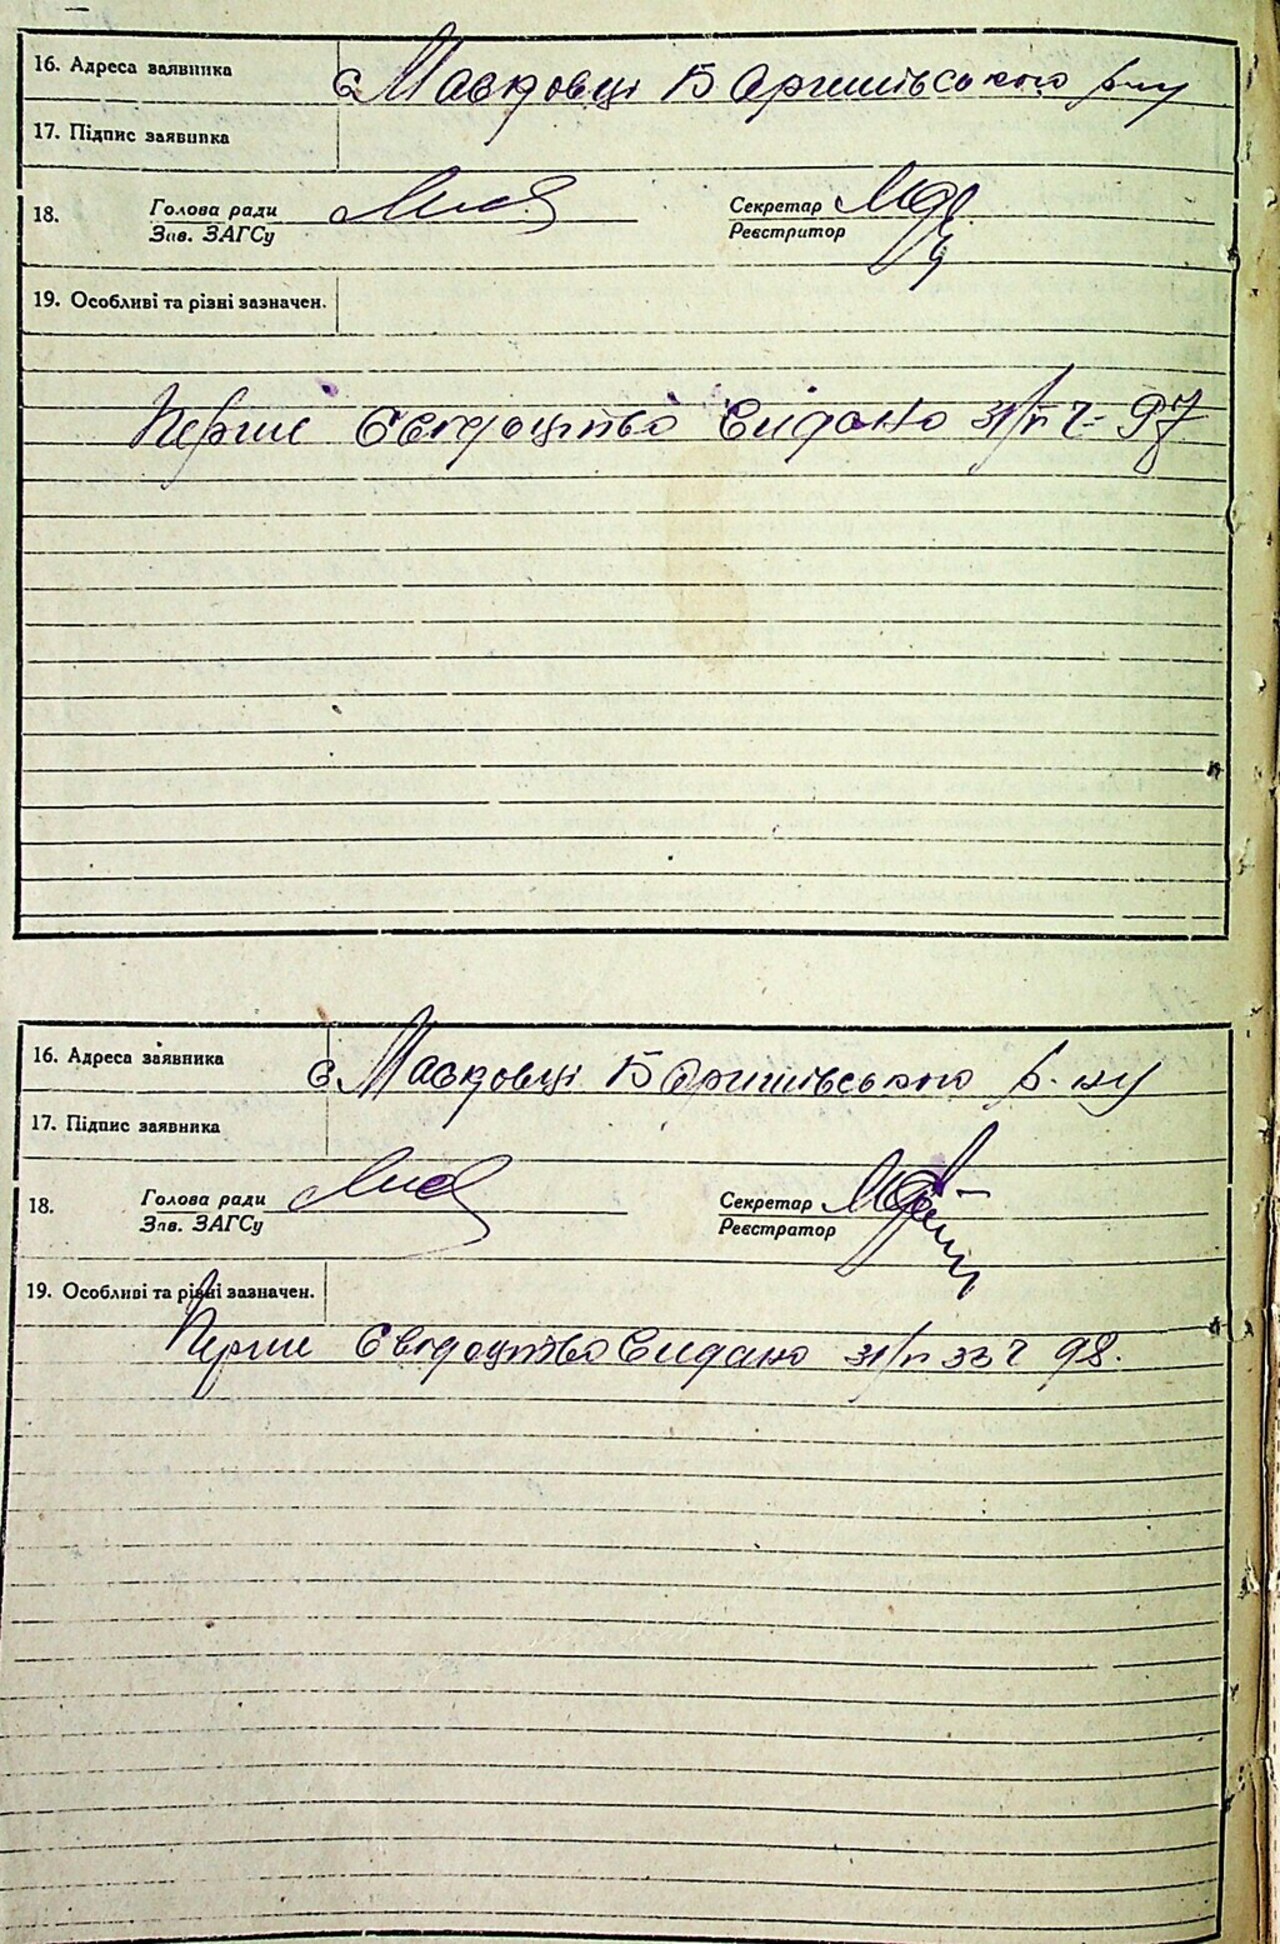 16. Адреса заявника с. Масковці Баришівського р-ну
17. Підпис заявника
18. Голова ради Секретар
Зав. ЗАГСу Реєстратор
19. Особливі та різні зазначен.
Перше свідоцтво видано 31/ 97
16. Адреса заявника с. Масковці Баришівського р-ну
17. Підпис заявника
18. Голова ради Секретар
Зав. ЗАГСу Реєстратор
19. Особливі та різні зазначен.
Перше свідоцтво видано 31/ 33 г 98.